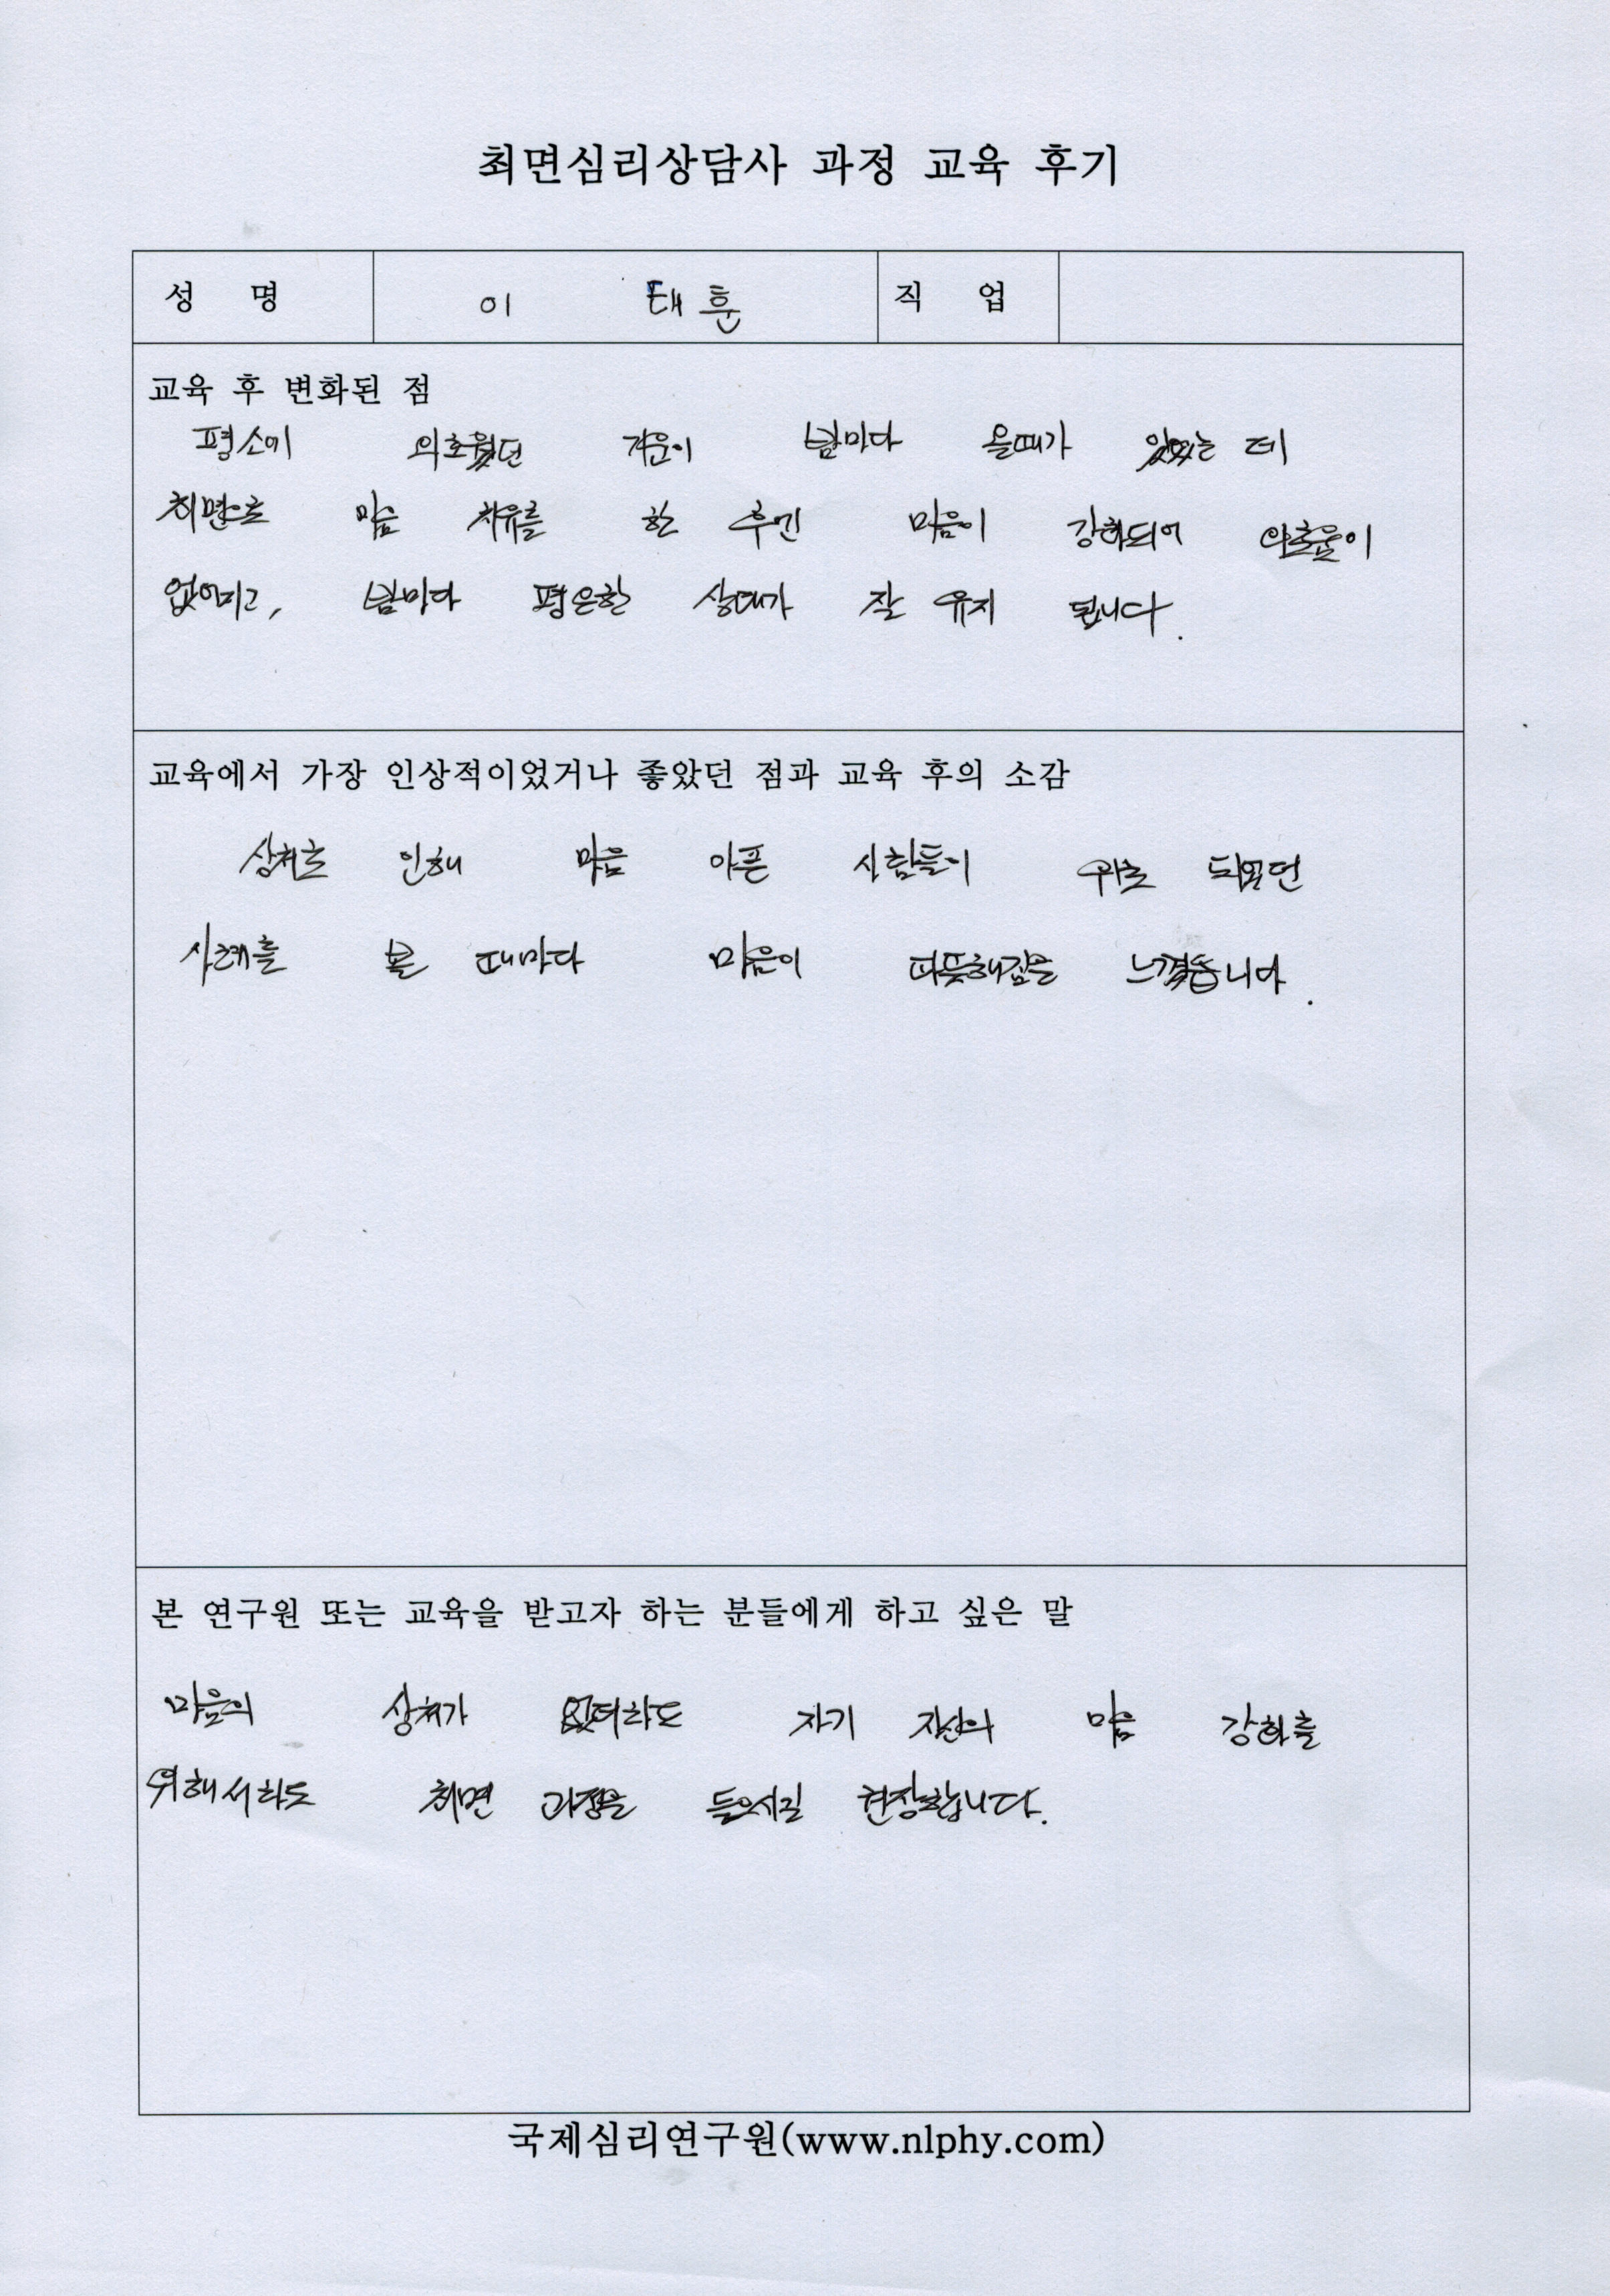 최면심리상담사 과정 교육 후기
성 명 이 태훈 직 업
교육 후 변화된 점
평소에 외로웠던 기운이 밤마다 올때가 있었는 데
최면으로 마음 치유를 한 후엔 마음이 강화되어 외로움이
없어지고, 밤마다 평온한 상태가 잘 유지 됩니다.
교육에서 가장 인상적이었거나 좋았던 점과 교육 후의 소감
상처로 인해 마음 아픈 사람들이 위로 되었던
사례를 볼 때마다 마음이 따뜻해짐을 느꼈습니다.
본 연구원 또는 교육을 받고자 하는 분들에게 하고 싶은 말
마음의 상처가 없더라도 자기 자신의 마음 강화를
위해서라도 최면 과정을 들으시길 권장합니다.
국제심리연구원(www.nlphy.com)